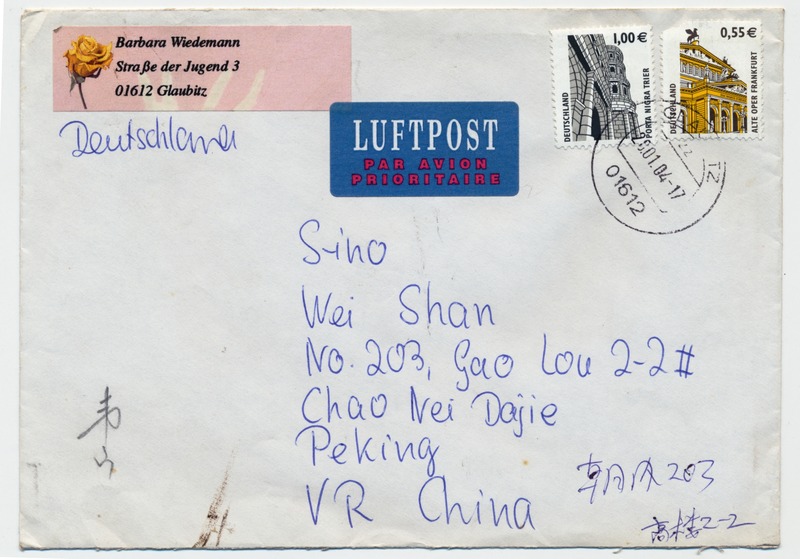 Barbara Wiedemann
Straße der Jugend 3
01612 Glaubitz
Deutschland
LUFTPOST
PAR AVION
PRIORITAIRE
1,00 €
DEUTSCHLAND
PORTA NIGRA TRIER
0,55 €
DEUTSCHLAND
ALTE OPER FRANKFURT
01.04-17
01612
Sino
Wei Shan
No. 203, Gao Lou 2-2#
Chao Nei Dajie
Peking
VR China
韦
山
朝内 203
高楼 2-2